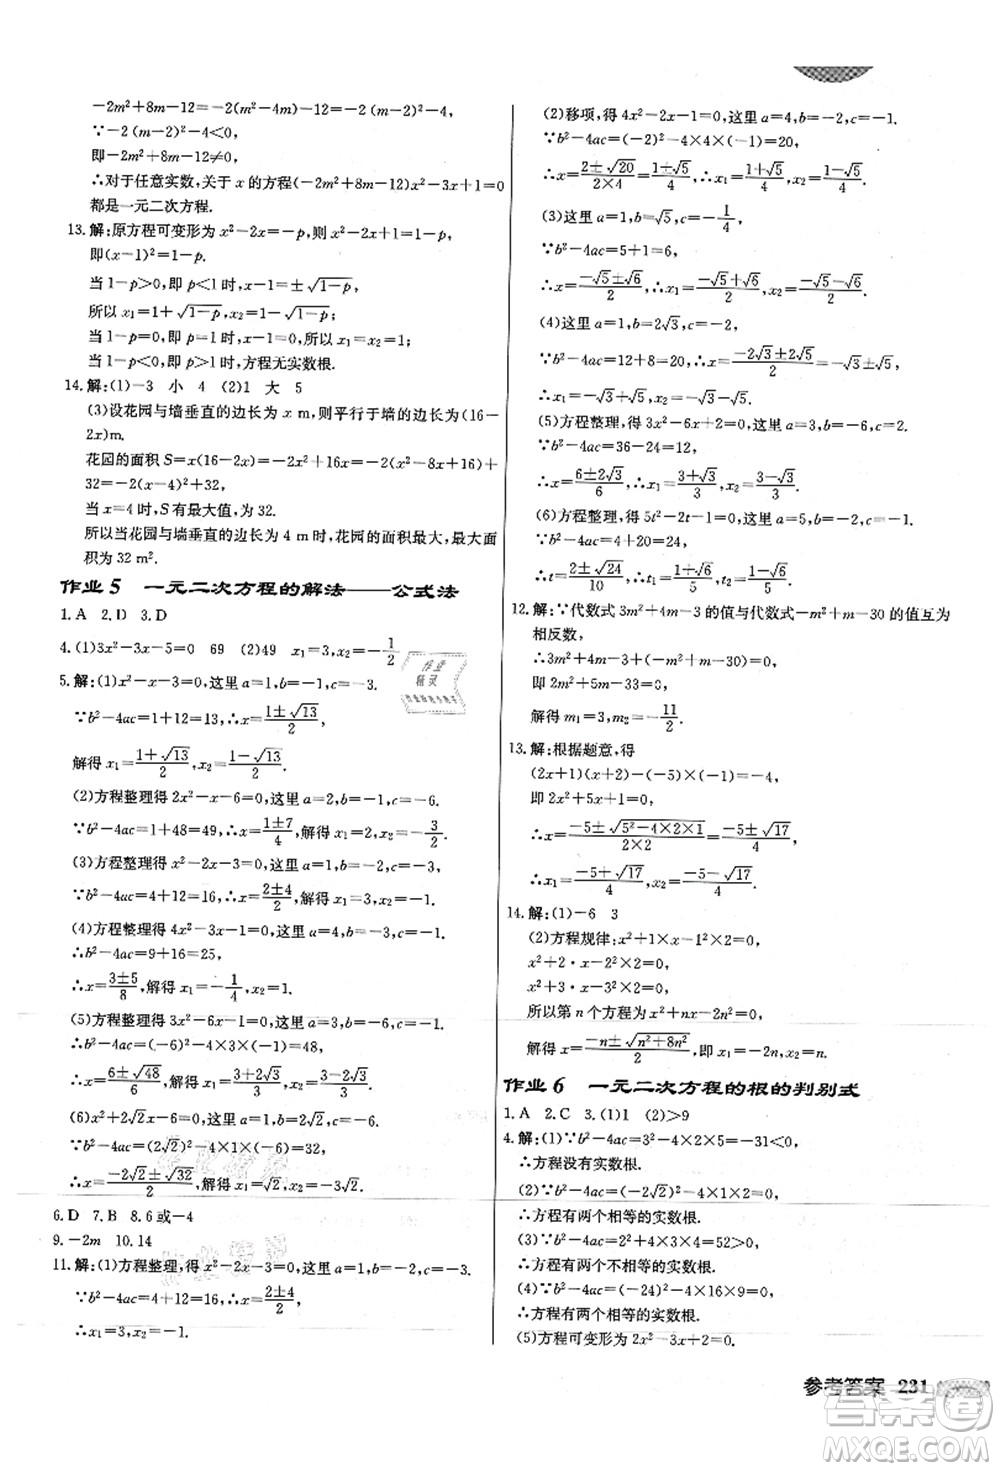 -2m²+8m-12=-2(m²-4m)-12=
∵-2(m-2)²-4<0,
即-2m²+8m-12≠0,
∴对于任意实数,关于x的方程(-2m²+8m-12)x²-3x+1=0
都是一元二次方程.
13.解:原方程可变形为x²-2x=-p,则x²-2x+1=1-p,
即(x-1)²=1-p.
当1-p>0,即p<1时,x-1=±√(1-p),
所以x₁=1+√(1-p),x₂=1-√(1-p);
当1-p=0,即p=1时,x-1=0,所以x₁=x₂=1;
当1-p<0,即p>1时,方程无实数根.
14.解:(1)-3 小 4 (2)1 大 5
(3)设花园与墙垂直的边长为x m,则平行于墙的边长为(16-
2x)m.
花园的面积S=x(16-2x)=-2x²+16x=-2(x²-8x+16)+
32=-2(x-4)²+32,
当x=4时,S有最大值,为32.
所以当花园与墙垂直的边长为4 m时,花园的面积最大,最大面
积为32 m².
作业5 一元二次方程的解法——公式法
1.A 2.D 3.D
4.(1)3x²-3x-5=0 69 (2)49 x₁=3,x₂=-1/2
5.解:(1)x²-x-3=0,这里a=1,b=-1,c=-3.
∵b²-4ac=1+12=13,∴x=(1±√13)/2,
解得x₁=(1+√13)/2,x₂=(1-√13)/2.
(2)方程整理得2x²-x-6=0,这里a=2,b=-1,c=-6.
∵b²-4ac=1+48=49,∴x=(1±7)/4,解得x₁=2,x₂=-3/2.
(3)方程整理得x²-2x-3=0,这里a=1,b=-2,c=-3,
∵b²-4ac=4+12=16,∴x=(2±4)/2,解得x₁=3,x₂=-1.
(4)方程整理得4x²-3x-1=0,这里a=4,b=-3,c=-1.
∴b²-4ac=9+16=25,
∴x=(3±5)/8,解得x₁=-1/4,x₂=1.
(5)方程整理得3x²-6x-1=0,这里a=3,b=-6,c=-1.
∵b²-4ac=(-6)²-4×3×(-1)=48,
∴x=(6±√48)/6,解得x₁=(3+2√3)/3,x₂=(3-2√3)/3.
(6)x²+2√2x-6=0,这里a=1,b=2√2,c=-6.
∵b²-4ac=(2√2)²-4×1×(-6)=32,
∴x=(-2√2±√32)/2,解得x₁=√2,x₂=-3√2.
6.D 7.B 8.6或-4
9.-2m 10.14
11.解:(1)方程整理,得x²-2x-3=0,这里a=1,b=-2,c=-3.
∵b²-4ac=4+12=16,∴x=(2±4)/2,
∴x₁=3,x₂=-1.
(2)移项,得4x²-2x-1=0,这里a=4,b=-2,c=-1.
∵b²-4ac=(-2)²-4×4×(-1)=20,
∴x=(2±√20)/(2×4)=(1±√5)/4,∴x₁=(1+√5)/4,x₂=(1-√5)/4.
(3)这里a=1,b=√5,c=-1/4.
∵b²-4ac=5+1=6,
∴x=(-√5±√6)/2,∴x₁=(-√5+√6)/2,x₂=(-√5-√6)/2.
(4)这里a=1,b=2√3,c=-2.
∵b²-4ac=12+8=20,∴x=(-2√3±2√5)/2=-√3±√5,
∴x₁=-√3+√5,x₂=-√3-√5.
(5)方程整理,得3x²-6x+2=0,这里a=3,b=-6,c=2.
∵b²-4ac=36-24=12,
∴x=(6±2√3)/6,∴x₁=(3+√3)/3,x₂=(3-√3)/3.
(6)方程整理,得5t²-2t-1=0,这里a=5,b=-2,c=-1.
∵b²-4ac=4+20=24,
∴t=(2±2√6)/10,∴t₁=(1+√6)/5,t₂=(1-√6)/5.
12.解:∵代数式3m²+4m-3的值与代数式-m²+m-30的值互为
相反数,
∴3m²+4m-3-m²+m-30=0,
即2m²+5m-33=0,
解得m₁=3,m₂=-11/2.
13.解:根据题意,得
(2x+1)(x+2)-(-5)×(-1)=-4,
即2x²+5x+1=0,
∴x=(-5±√(5²-4×2×1))/(2×2)=(-5±√17)/4,
∴x₁=(-5+√17)/4,x₂=(-5-√17)/4.
14.解:(1)-6 3
(2)方程规律:x²+1·x-2×1²=0,
x²+2·x-2×2²=0,
x²+3·x-2×3²=0,
所以第n个方程为x²+nx-2n²=0,
解得x=(-n±√(n²+8n²))/2,即x₁=-2n,x₂=n.
作业6 一元二次方程的根的判别式
1.A 2.C 3.(1)1 (2)>9
4.解:(1)∵b²-4ac=3²-4×2×5=-31<0,
∴方程没有实数根.
(2)∵b²-4ac=(-2√2)²-4×1×2=0,
∴方程有两个相等的实数根.
(3)∵b²-4ac=2²+4×3×4=52>0,
∴方程有两个不相等的实数根.
(4)∵b²-4ac=(-24)²-4×16×9=0,
∴方程有两个相等的实数根.
(5)方程可变形为2x²-3x+2=0,
参考答案 231
作业
精灵
答案圈
MXQE.COM